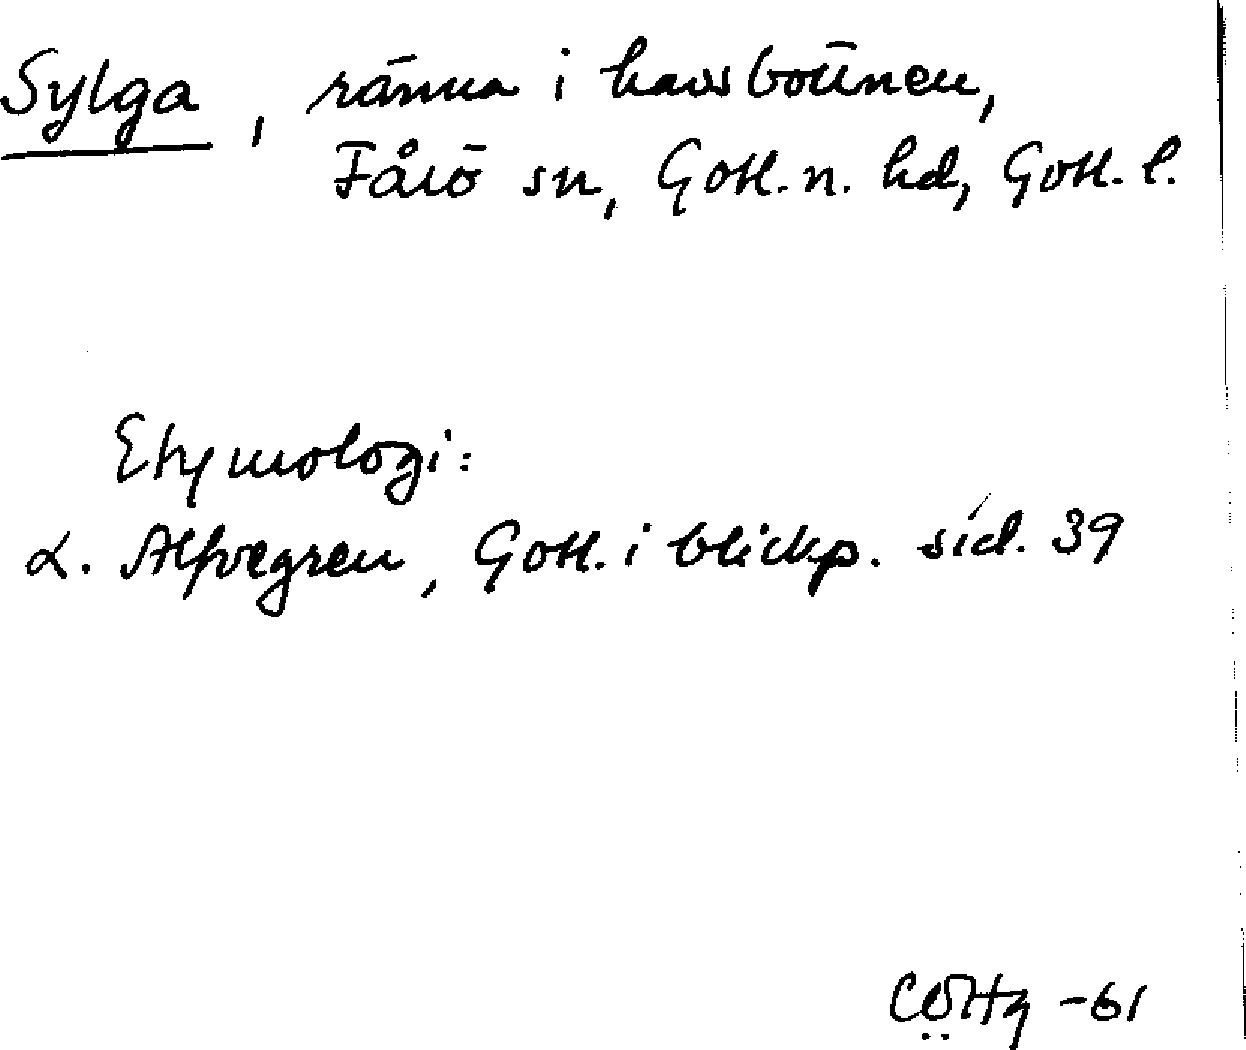 Sylga, ränna i havsbottnen,
Fårö sn, Gotl. n. hd, Gotl. l.
Etymologi:
L. Alfvegren, Gotl. i blickp. sid. 39
-61